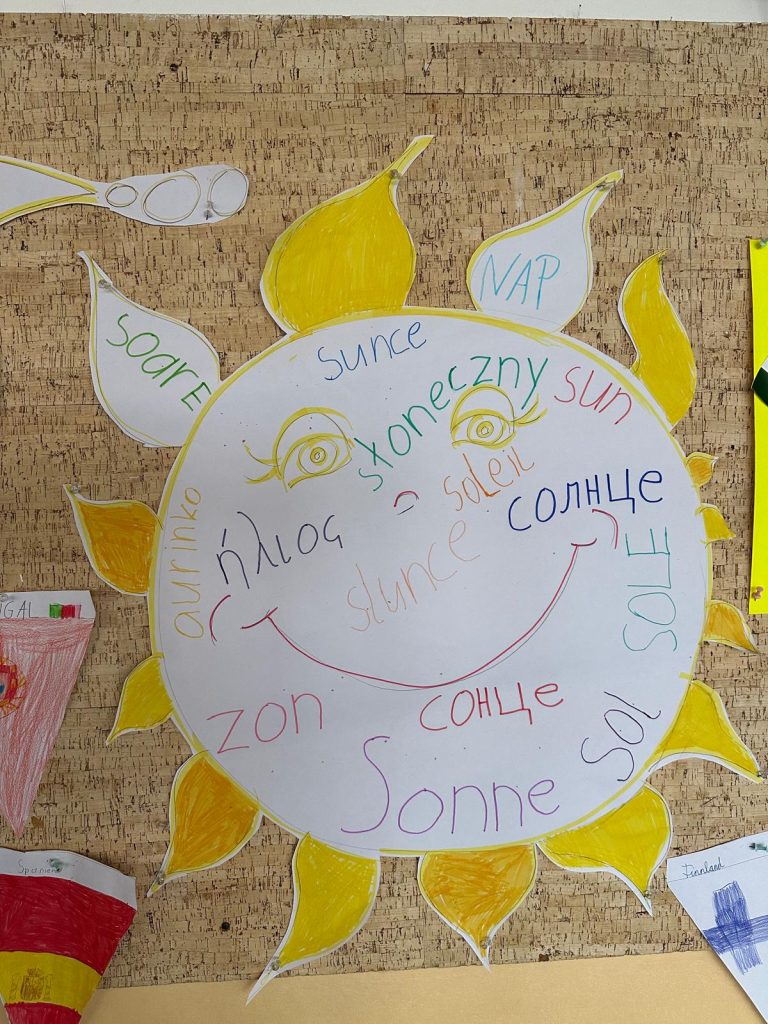 NAP
soare
sunce
słoneczny
sun
soleil
солнце
aurinko
ήλιος
slunce
SOLE
zon
сонце
Sol
Sonne
GAL
Spanien
Finnland